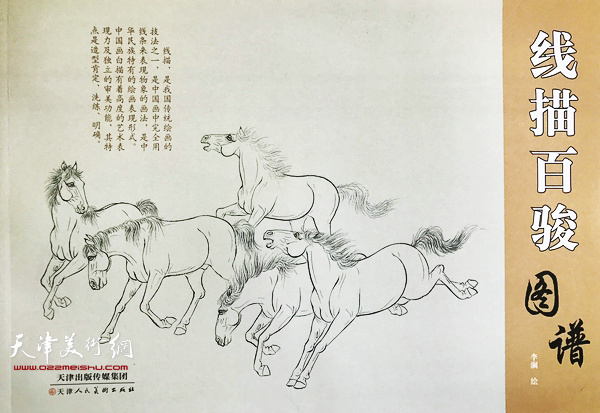 线描百骏
图谱
李澜 绘
线描，是我国传统绘画的
技法之一，是中国画中完全用
线条来表现物象的画法，是中
华民族特有的绘画表现形式。
中国画白描有着高度的艺术表
现力及独立的审美功能，其特
点是造型肯定、洗练、明确。
天津美術網
www.022meishu.com
天津出版传媒集团
天津人民美术出版社